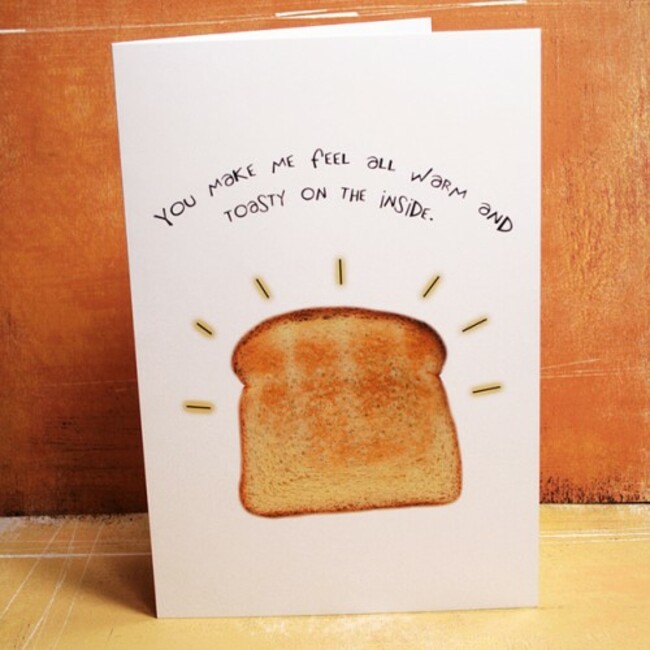 YOU MAKE ME FEEL ALL WARM AND
TOASTY ON THE INSIDE.